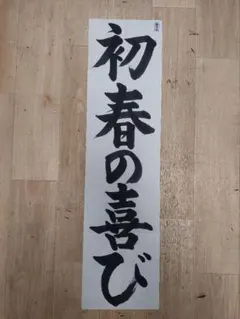 初春の喜び